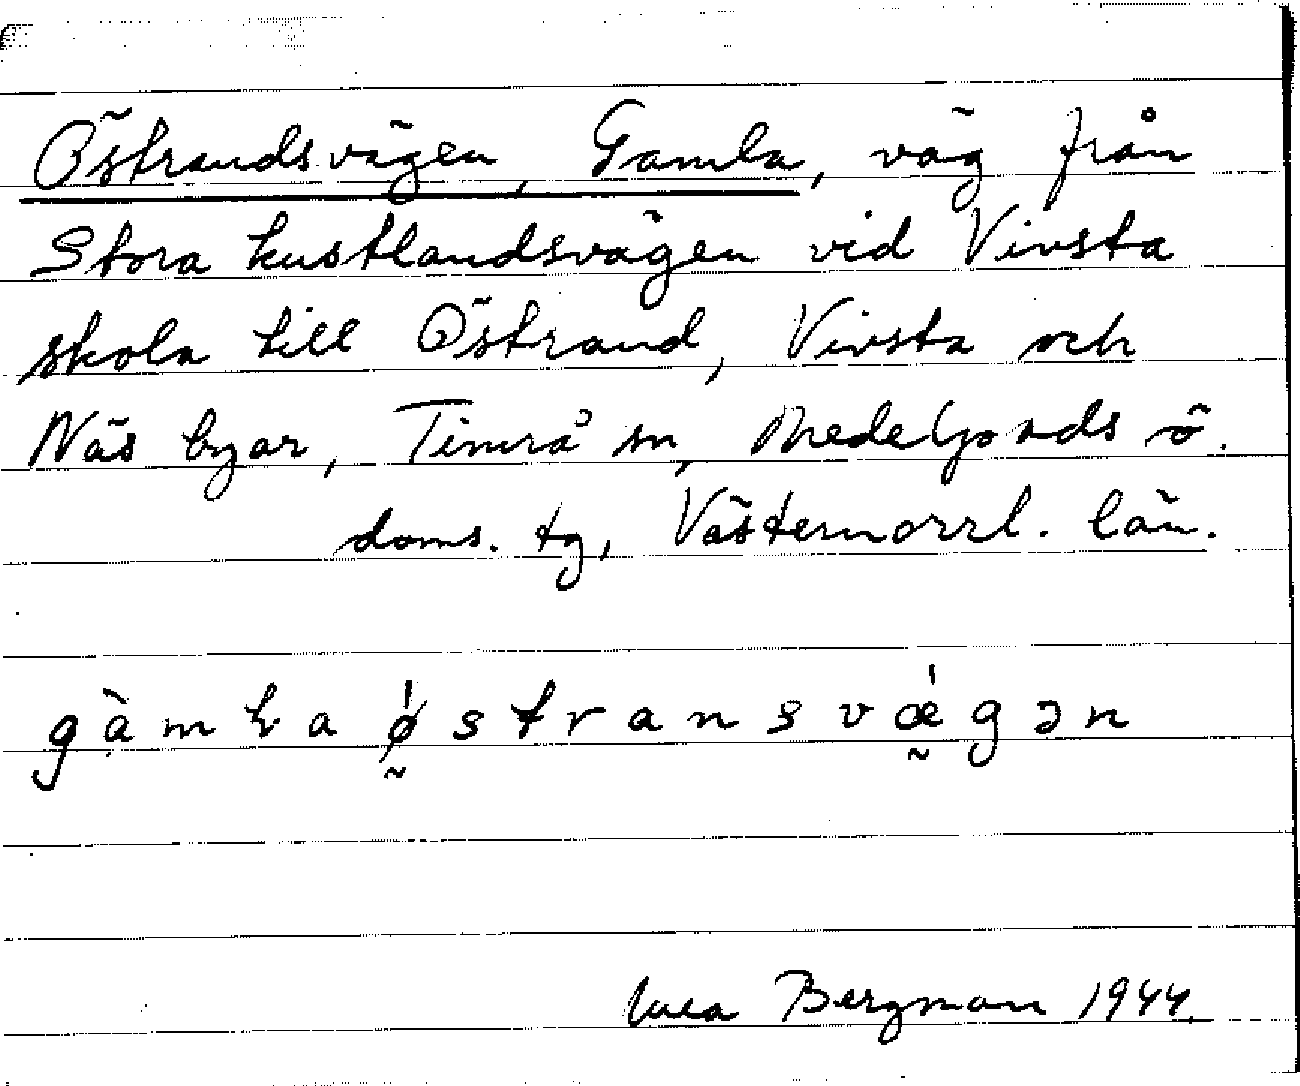 Östrandsvägen, Gamla, väg från
Stora kustlandsvägen vid Vivsta
skola till Östrand, Vivsta och
Näs byar, Timrå sn, Medelpads ö.
doms. tg, Västernorrl. län.
gàmɫa ǿ̰stransvǽ̰gən
Bergman 1944.